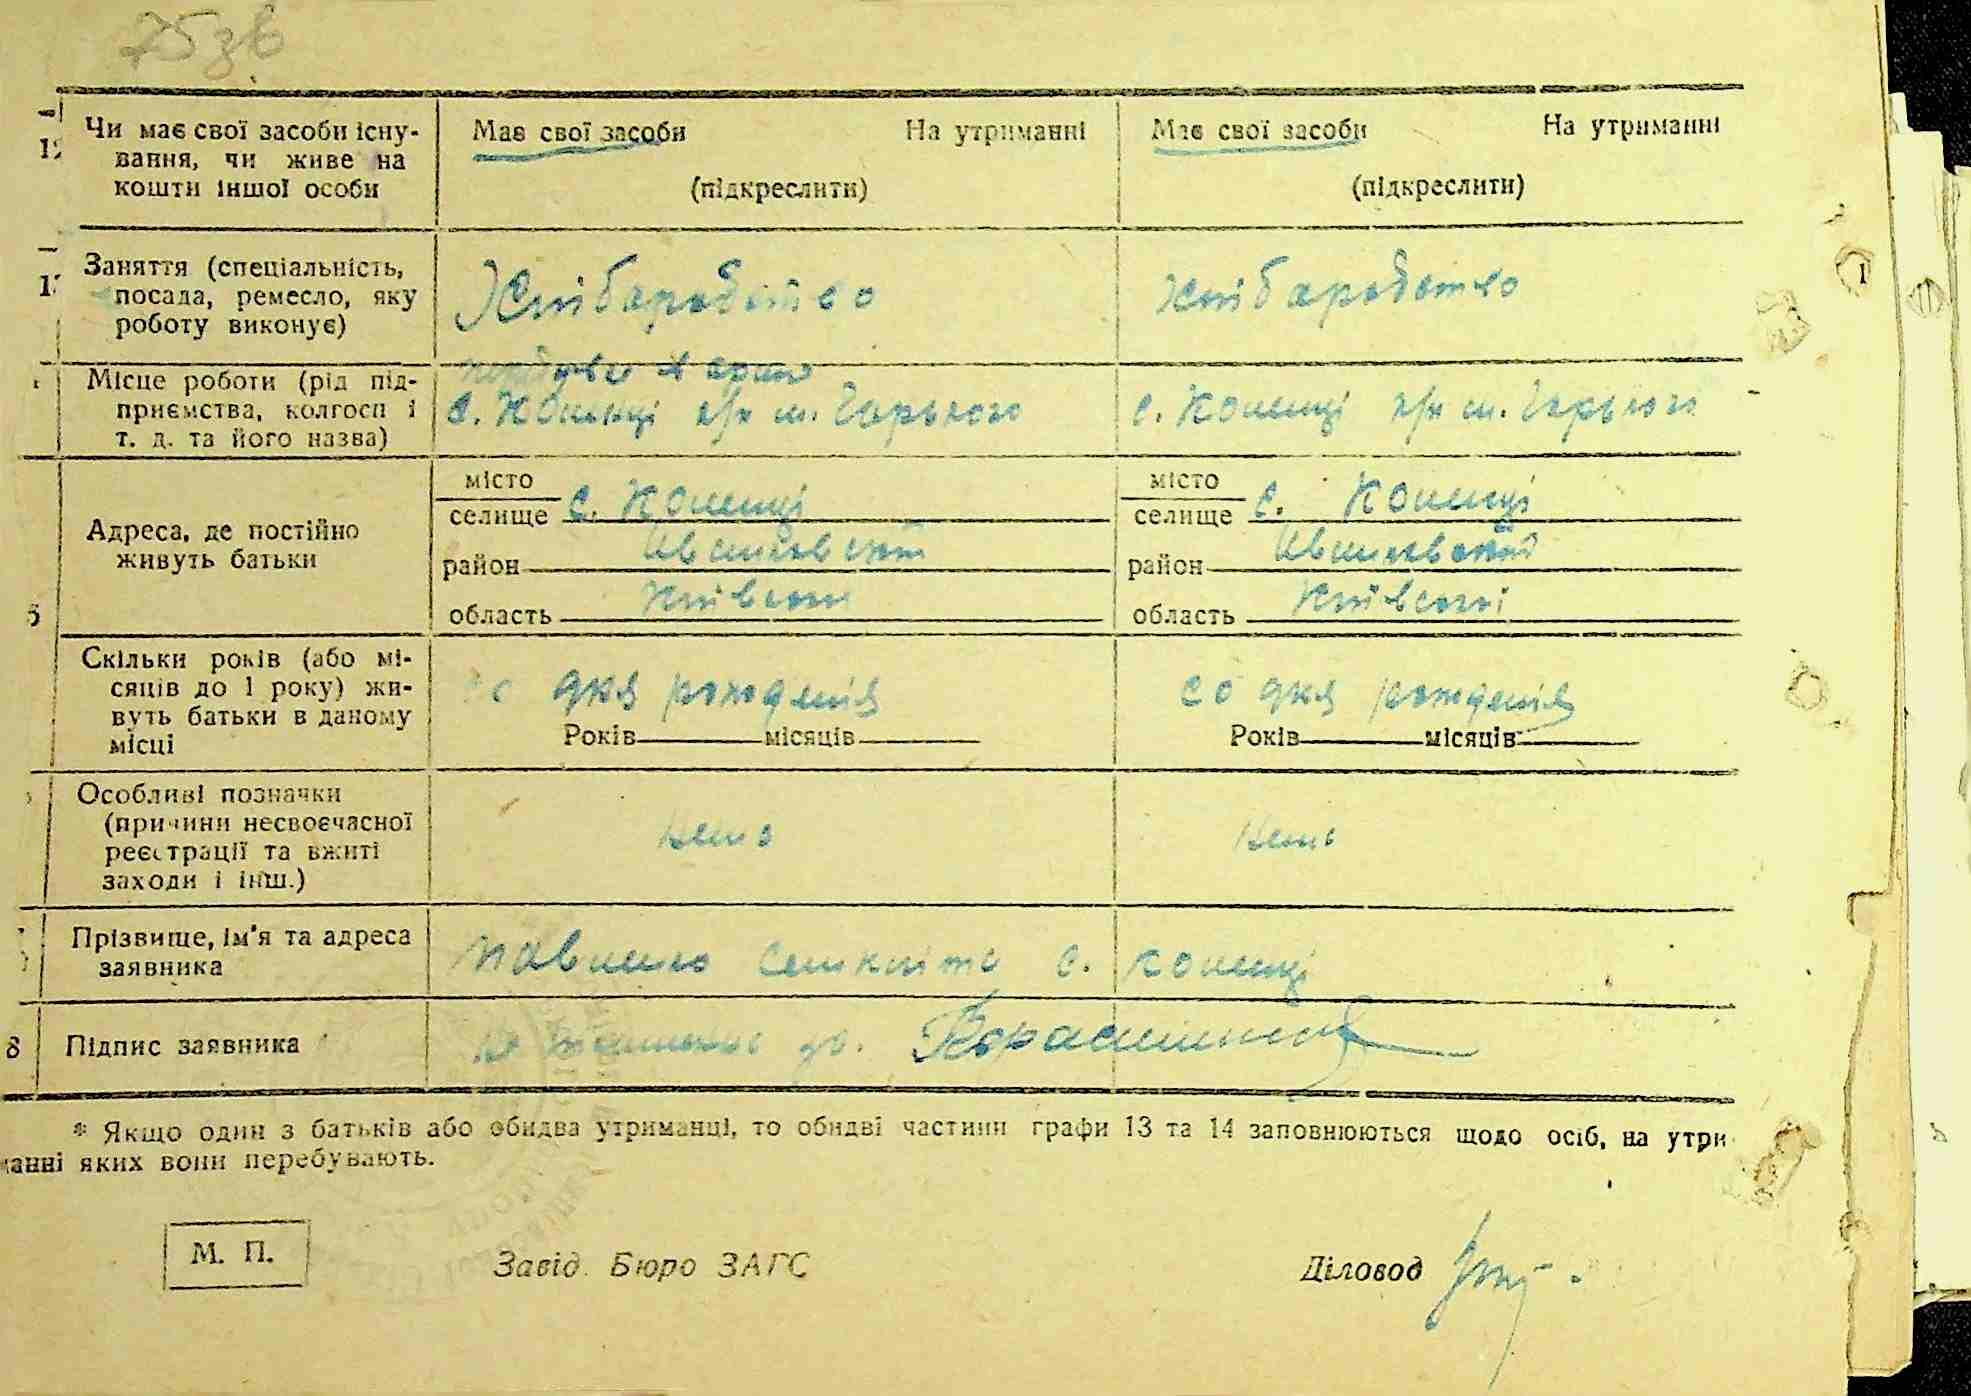 75 зв
12
Чи має свої засоби існу-
вання, чи живе на
кошти іншої особи
Має свої засоби На утриманні
(підкреслити)
Має свої засоби На утриманні
(підкреслити)
Заняття (спеціальність,
посада, ремесло, яку
роботу виконує)
Хліборобство
хліборобство
Місце роботи (рід під-
приємства, колгосп і
т. д. та його назва)
с. Копенці к/г м. Горького
с. Копенці к/г м. Горького
Адреса, де постійно
живуть батьки
місто
селище с. Копенці
район
область Київської
місто
селище с. Копенці
район
область Київської
Скільки років (або мі-
сяців до 1 року) жи-
вуть батьки в даному
місці
со дня рождения
Років місяців
со дня рождения
Років місяців
Особливі позначки
(причини несвоєчасної
реєстрації та вжиті
заходи і інш.)
нема
нема
Прізвище, ім'я та адреса
заявника
с. копенці
8
Підпис заявника
* Якщо один з батьків або обидва утриманці, то обидві частини графи 13 та 14 заповнюються щодо осіб, на утри
манні яких вони перебувають.
М. П.
Завід. Бюро ЗАГС
Діловод